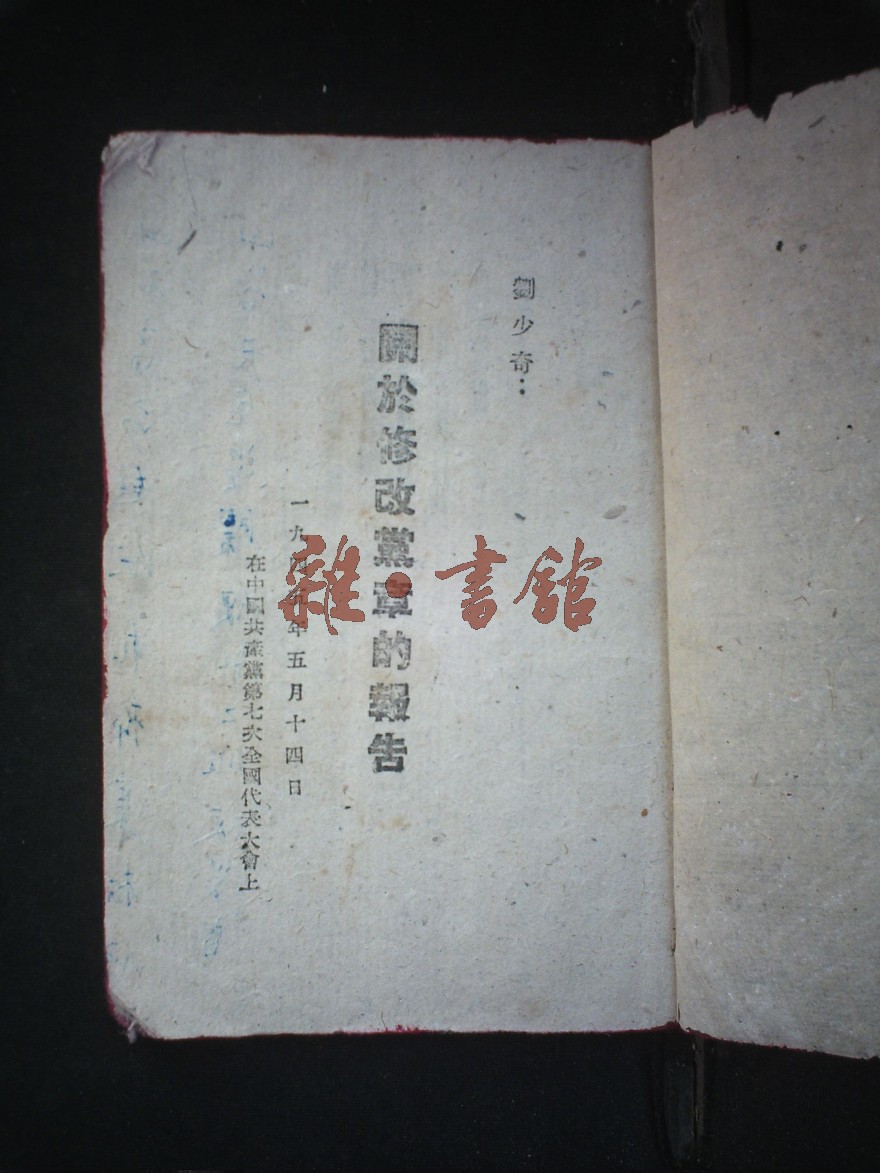 劉少奇：
關於修改黨章的報告
一九四五年五月十四日
在中國共產黨第七次全國代表大會上
雜·書館